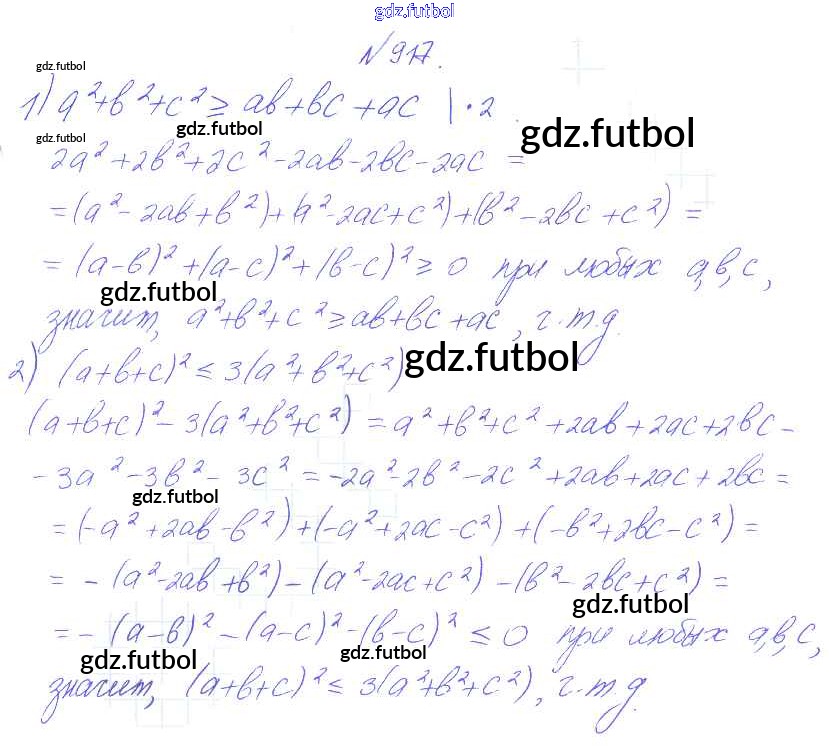 gdz.futbol
№917.
gdz.futbol
1) a²+b²+c² ≥ ab+bc+ac |·2
gdz.futbol
gdz.futbol
gdz.futbol
2a²+2b²+2c²-2ab-2bc-2ac =
=(a²-2ab+b²)+(a²-2ac+c²)+(b²-2bc+c²)=
=(a-b)²+(a-c)²+(b-c)² ≥ 0 при любых a,b,c,
gdz.futbol
значит, a²+b²+c² ≥ ab+bc+ac, ч.т.д.
2) (a+b+c)² ≤ 3(a²+b²+c²)
gdz.futbol
(a+b+c)²-3(a²+b²+c²) = a²+b²+c²+2ab+2ac+2bc-
-3a²-3b²-3c² = -2a²-2b²-2c²+2ab+2ac+2bc=
gdz.futbol
=(-a²+2ab-b²)+(-a²+2ac-c²)+(-b²+2bc-c²)=
= -(a²-2ab+b²)-(a²-2ac+c²)-(b²-2bc+c²)=
gdz.futbol
=-(a-b)²-(a-c)²-(b-c)² ≤ 0 при любых a,b,c,
gdz.futbol
gdz.futbol
значит, (a+b+c)² ≤ 3(a²+b²+c²), ч.т.д.